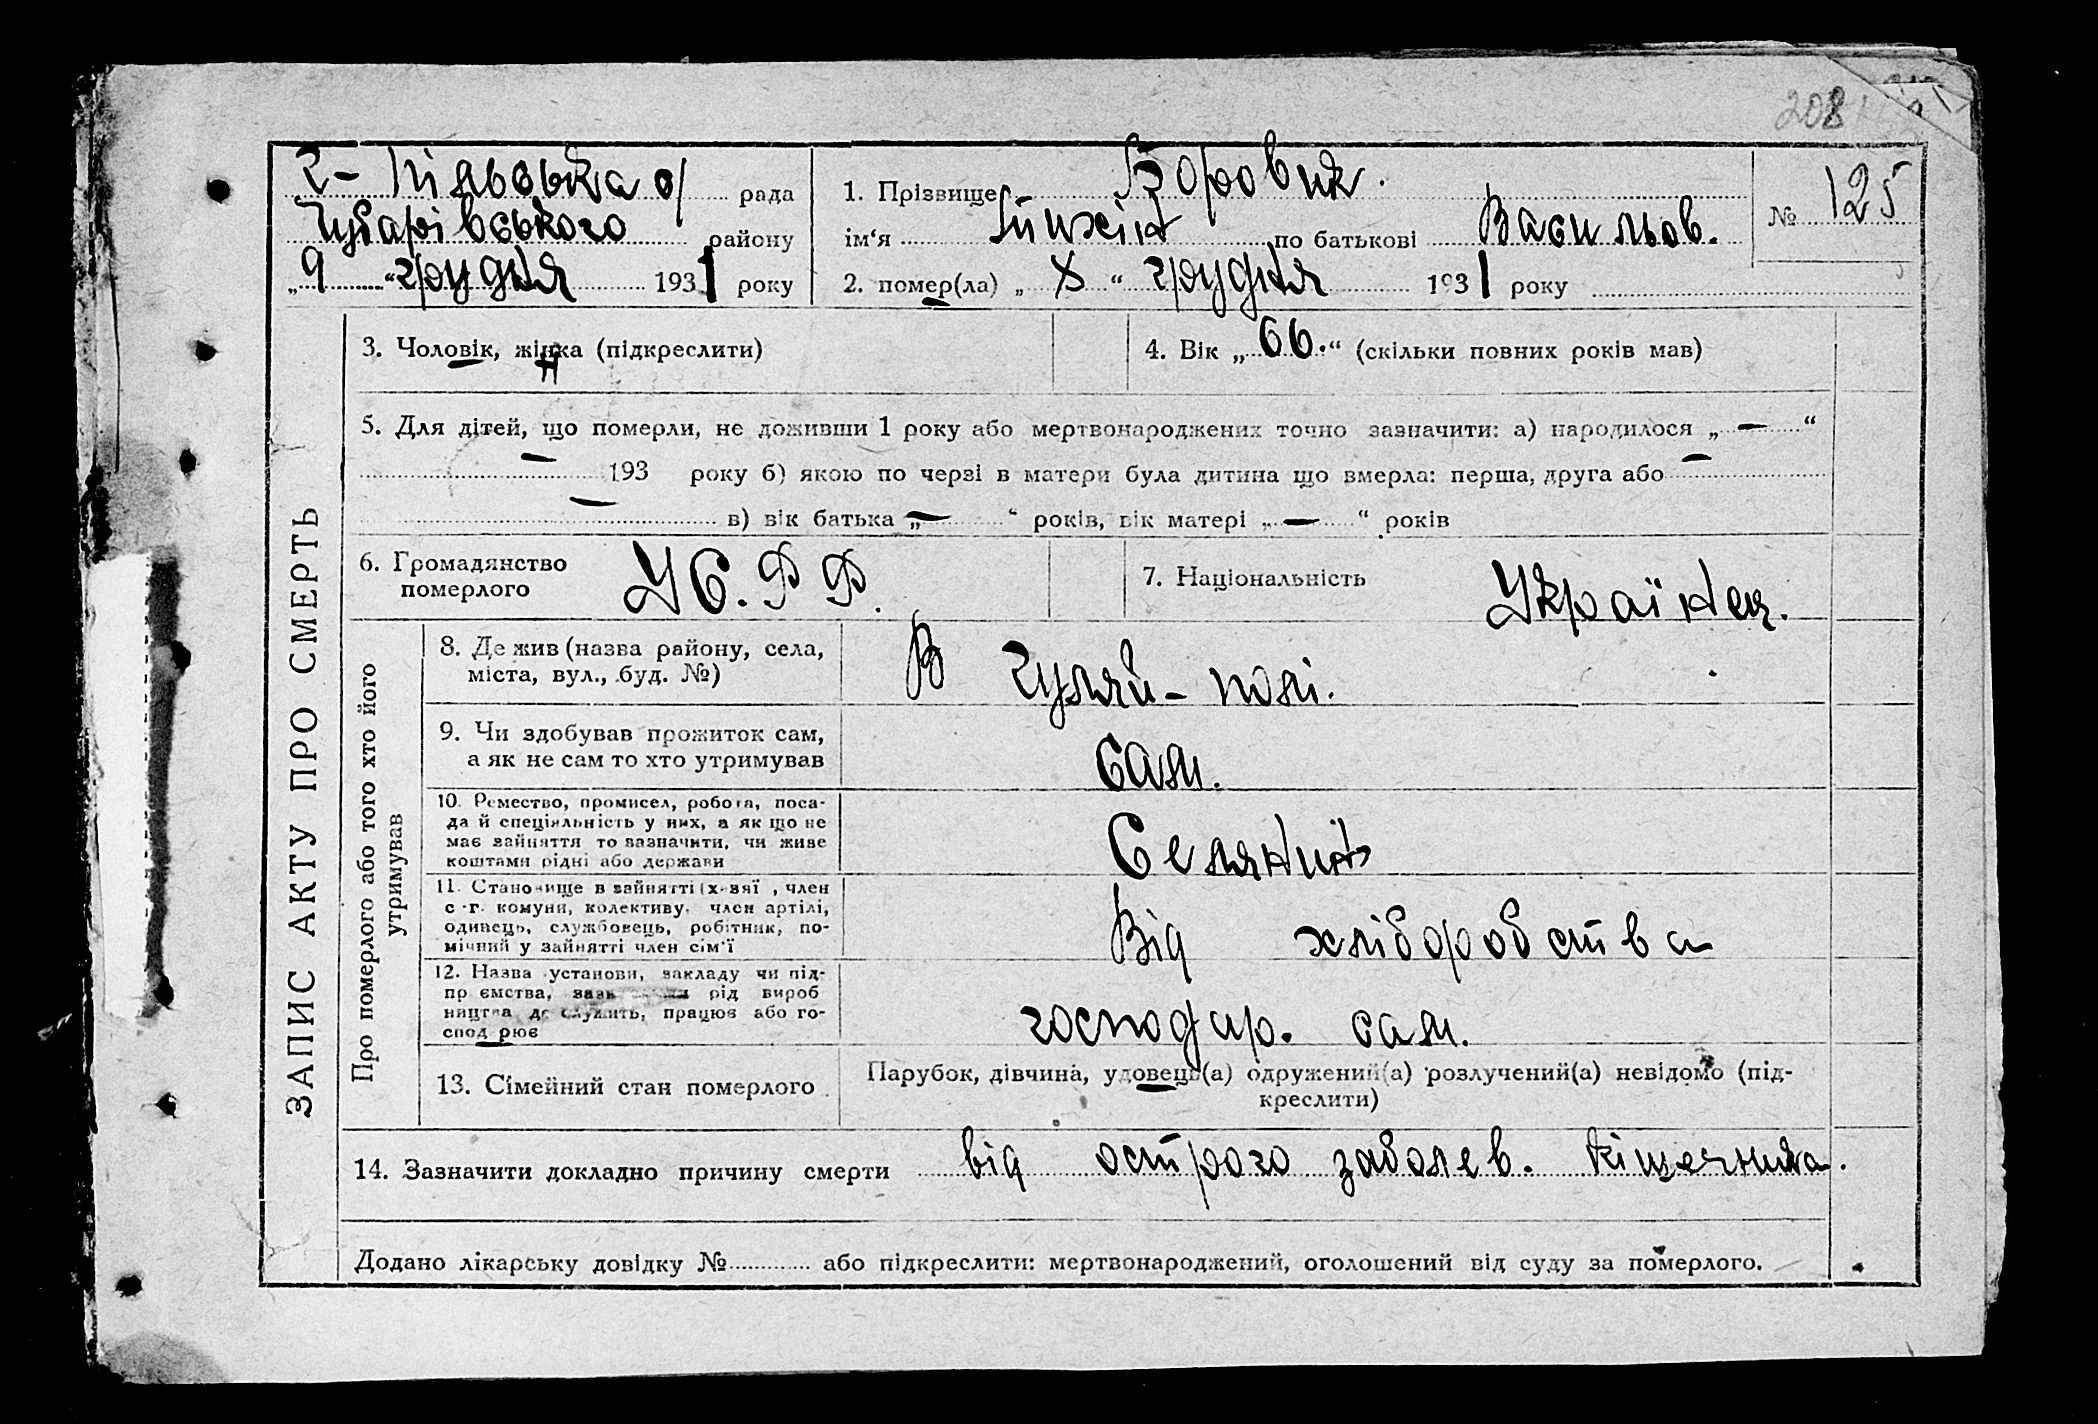 208
Г- пільська с/ рада
Чубарівського району
„ 9 “ грудня 1931 року
1. Прізвище Боровик.
ім‘я по батькові Васильов.
№ 125
2. помер(ла) „ 8 “ грудня 1931 року
ЗАПИС АКТУ ПРО СМЕРТЬ
3. Чоловік, жінка (підкреслити)
4. Вік „ 66. “ (скільки повних років мав)
5. Для дітей, що померли, не доживши 1 року або мертвонароджених точно зазначити: а) народилося „ — “
— 193 року б) якою по черзі в матери була дитина що вмерла: перша, друга або —
— в) вік батька „ — “ років, вік матері „ — “ років
6. Громадянство
померлого
УС.Р Р.
7. Національність Українец.
Про померлого або того хто його
утримував
8. Де жив (назва району, села,
міста, вул., буд. №)
В Гуляй- полі.
9. Чи здобував прожиток сам,
а як не сам то хто утримував
сам.
10. Ремество, промисел, робота, поса-
да й спеціяльність у них, а як що не
має зайняття то зазначити, чи живе
коштами рідні або держави
Селянин
11. Становище в зайнятті (х-вяї , член
с -г. комуни, колективу, член артілі,
одинець, службовець, робітник, по-
мічний у зайнятті член сім‘ї
Від хліборобства
12. Назва установи, закладу чи під-
пр ємства, рід вироб
ництва де служить, працює або го-
спод рює
господар. сам.
13. Сімейний стан померлого
Парубок, дівчина, удовець(а) одружений(а) розлучений(а) невідомо (під-
креслити)
14. Зазначити докладно причину смерти від острого заболев. кішечника.
Додано лікарську довідку № або підкреслити: мертвонароджений, оголошений від суду за померлого.